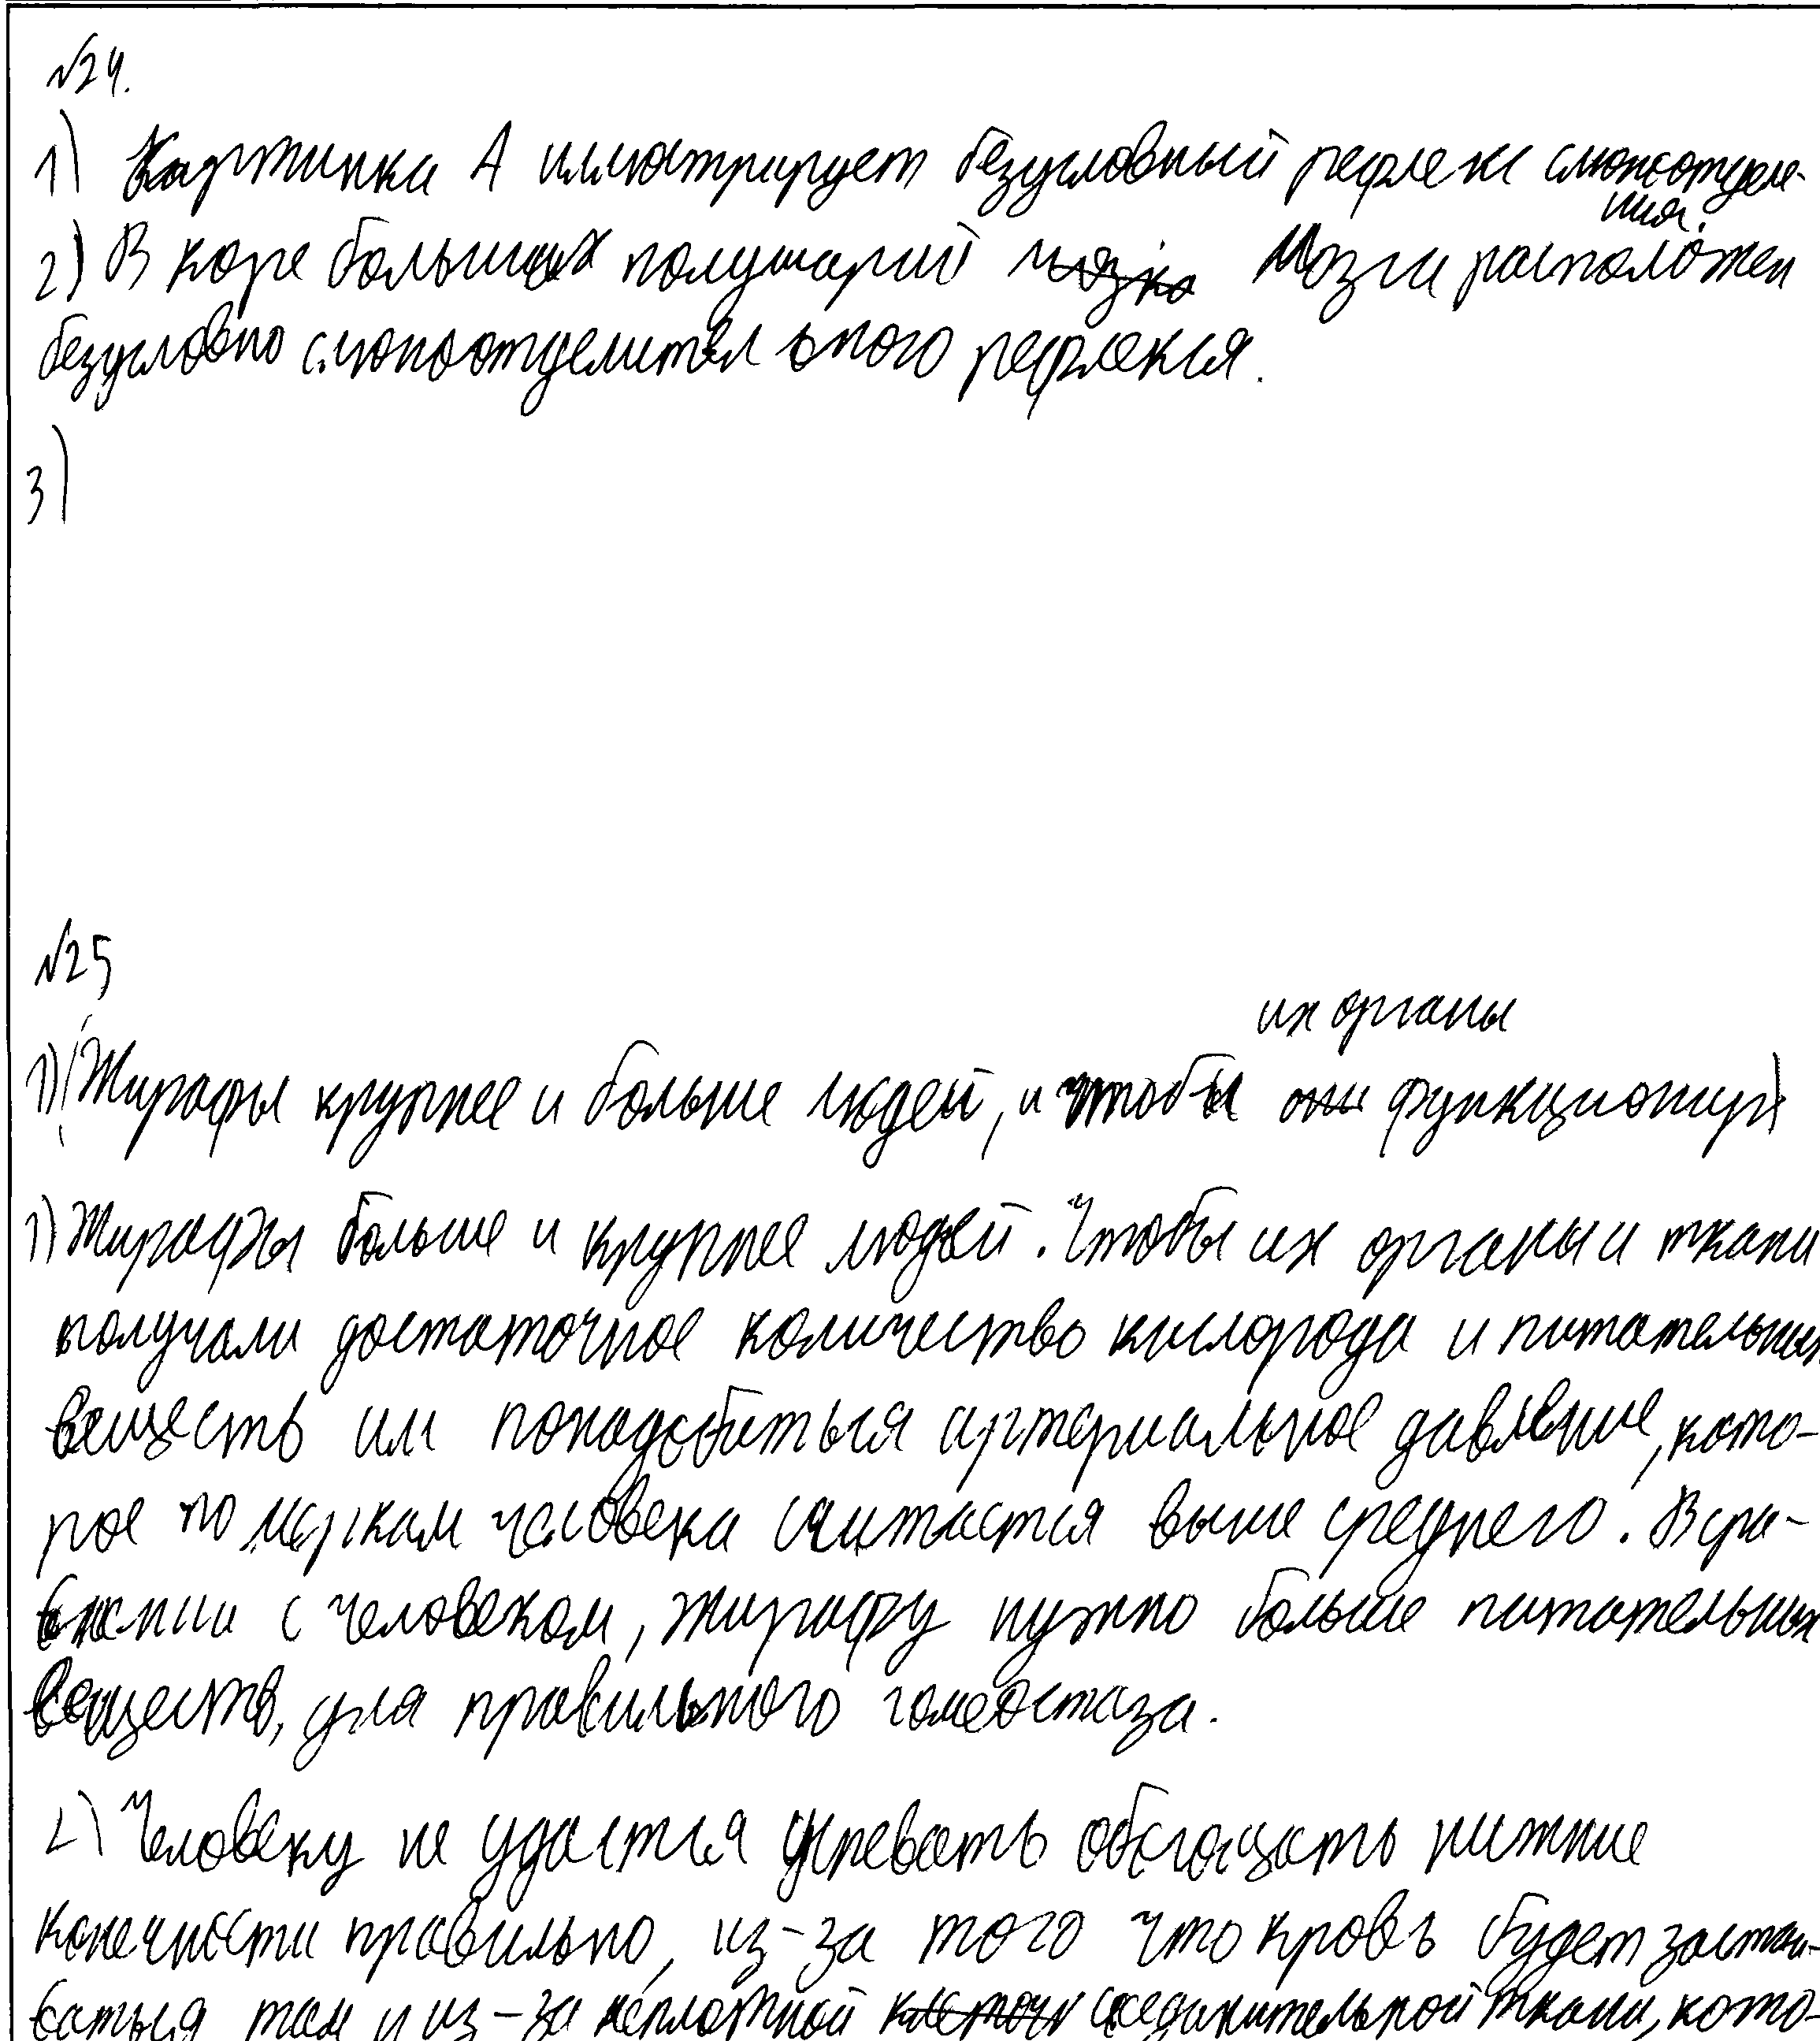 №24.
1) Картинка А иллюстрирует безусловный рефлекс слюноотделе-
ния.
2) В коре больших полушарий мозга расположен
безусловно слюноотделительного рефлекса.
3)
№25
их органы
1) (Жирафы крупнее и больше людей, и чтобы они функционир)
1) Жирафы больше и крупнее людей. Чтобы их органы и ткани
получали достаточное количество кислорода и питательных
веществ им понадобиться артериальное давление, кото-
рое по меркам человека считается выше среднего. В сра-
внении с человеком, жирафу нужно больше питательных
веществ, для правильного гомеостаза.
2) Человеку не удастся успевать обогащать нижние
конечности правильно, из-за того что кровь будет застаи-
ваться там и из-за неплотной соединительной ткани, кото-